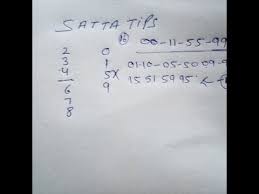 SATTA TIPS
2 0 (16) 00-11-55-99
3 1 01-10-05-50 09-9
4 5X 15 51 59 95
6 9
7
8